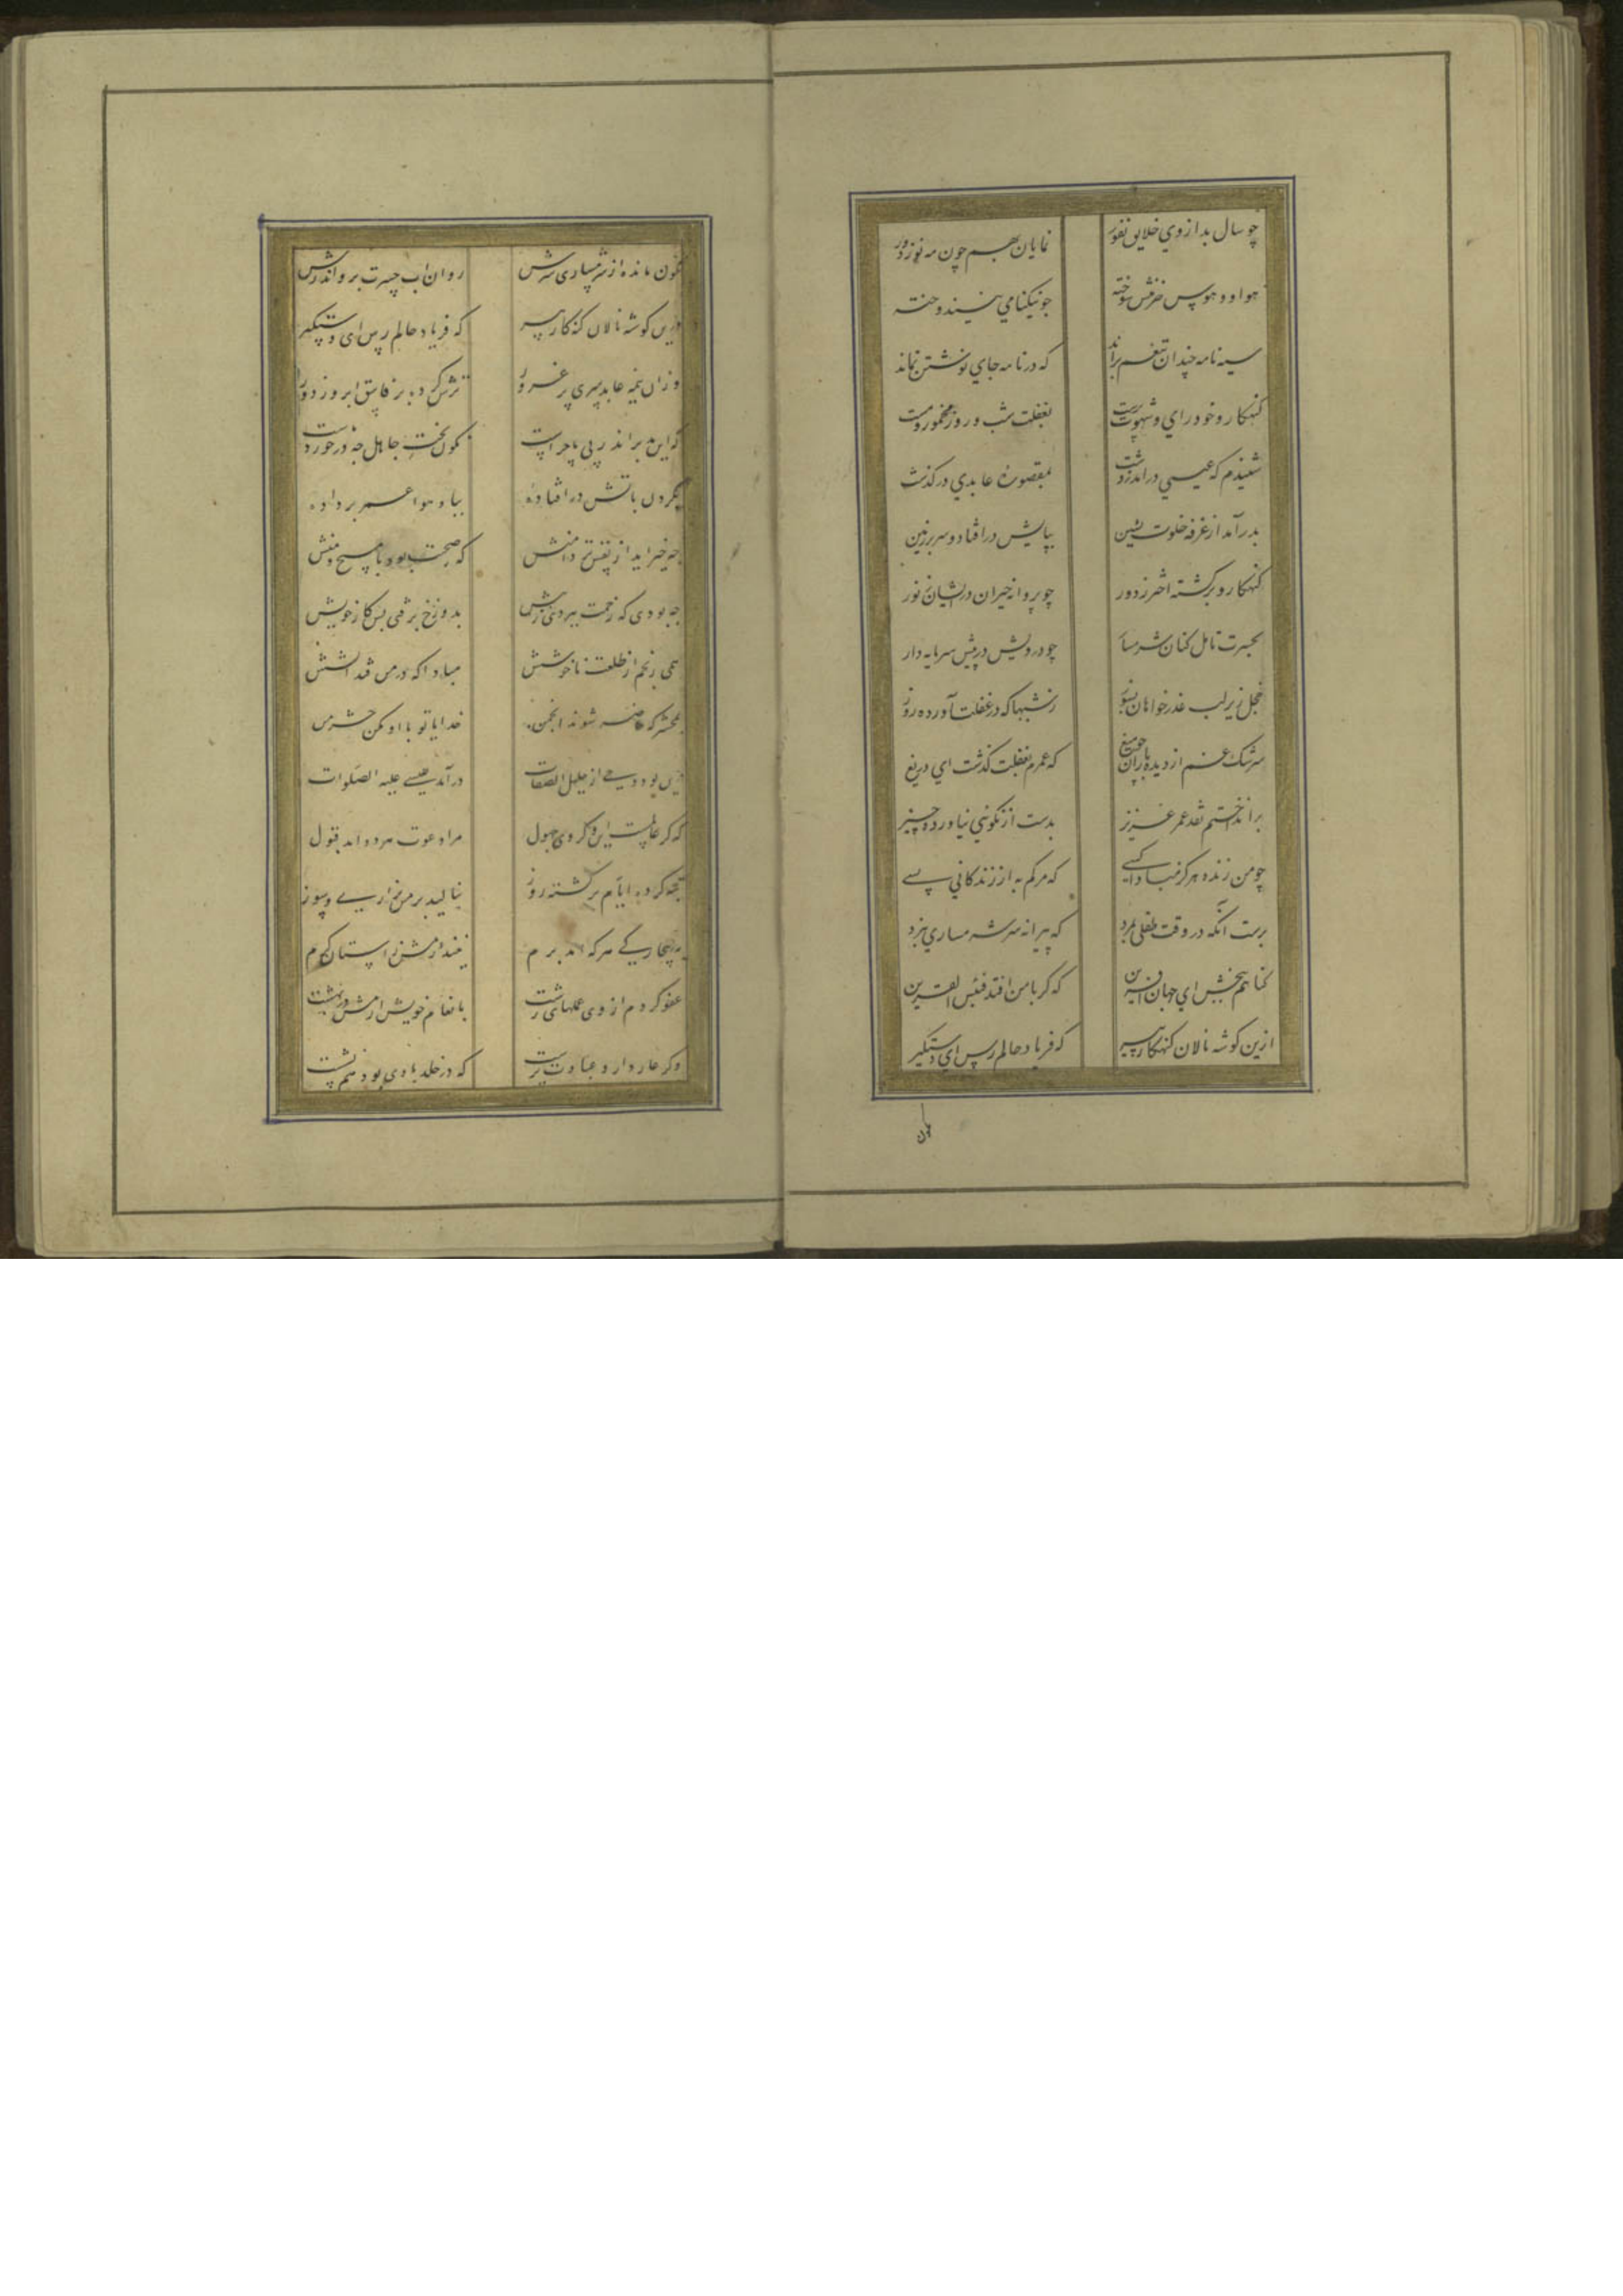 چو سال بد از وي خلایق نفور نمایان بهم چون مه نو ز دور
هوا و هوس خرمنش سوخته جو نیکنامي نیندوخته
سیه نامه چندان تنعم براند که در نامه جاي نوشتن نماند
کنهکار و خودراي و شهوت پرست بغفلت شب و روز مخمور و مست
شنیدم که عیسي درآمد ز دشت بمقصورهٔ عابدي درکذشت
بدر آمد از غرفه خلوت نشین بپایش درافتاد و سر بر زمین
کنهکار و برکشته اختر ز دور چو پروانه حیران در ایشان ز نور
بحسرت تامل کنان شرمسار چو درویش در پیش سرمایه دار
خجل زیر لب عذرخواهان بسوز ز شبها که در غفلت آورده روز
سرشک غم از دیده باران چو میغ که عمرم بغفلت کذشت اي دریغ
برانداختم نقد عمر عزیز بدست از نکوئي نیاورده چیز
چو من زنده هرکز مبادا کسي که مرکم به از زندکاني بسے
برست آنکه در وقت طفلی بمرد که پیرانه سر شرمساري نبرد
کناهم ببخش اي جهان آفرین که کر با من افتد فبئس القرین
ازین کوشه نالان کنهکار پیر که فریاد حالم رس اي دستکیر
نکون
نکون مانده از شرمساری سرش روان اب حسرت برو اندرش
وزین کوشه نالان کنه کار پیر که فریاد حالم رس ای دستکیر
وزان نیمه عابد سری پر غرور ترش کرده بر فاسق ابرو ز دور
که این مدبر اندر پی ما چراست نکون بخت جاهل چه درخورد
بکردن باتش درافتاده بباد هوا عمر برداده
چه خیر اید از نفس تر دامنش که صحبت بود با مسیح و منش
چه بودی که زحمت ببردی ز پیش بدوزخ برفتی پس کار خویش
همی رنجم از طلعت ناخوشش مبادا که در من فتد آتشش
بمحشر که حاضر شوند انجمن خدایا تو با او مکن حشر من
درین بود و وحي از جلیل الصفات درآمد بعیسے علیه الصلوات
که کر عالمست این و کر وی جهول مرا دعوت هر دو امد قبول
تبه کرده ایام برکشته روز بنالید بر من بزاري و سوز
به بیچارکے هر که امد برم نیندازمش ز استان کرم
عفو کردم از وی عملهای زشت بانعام خویش ارمش در بهشت
وکر عار دارد عبادت پرست که در خلد با وی بود هم نشست